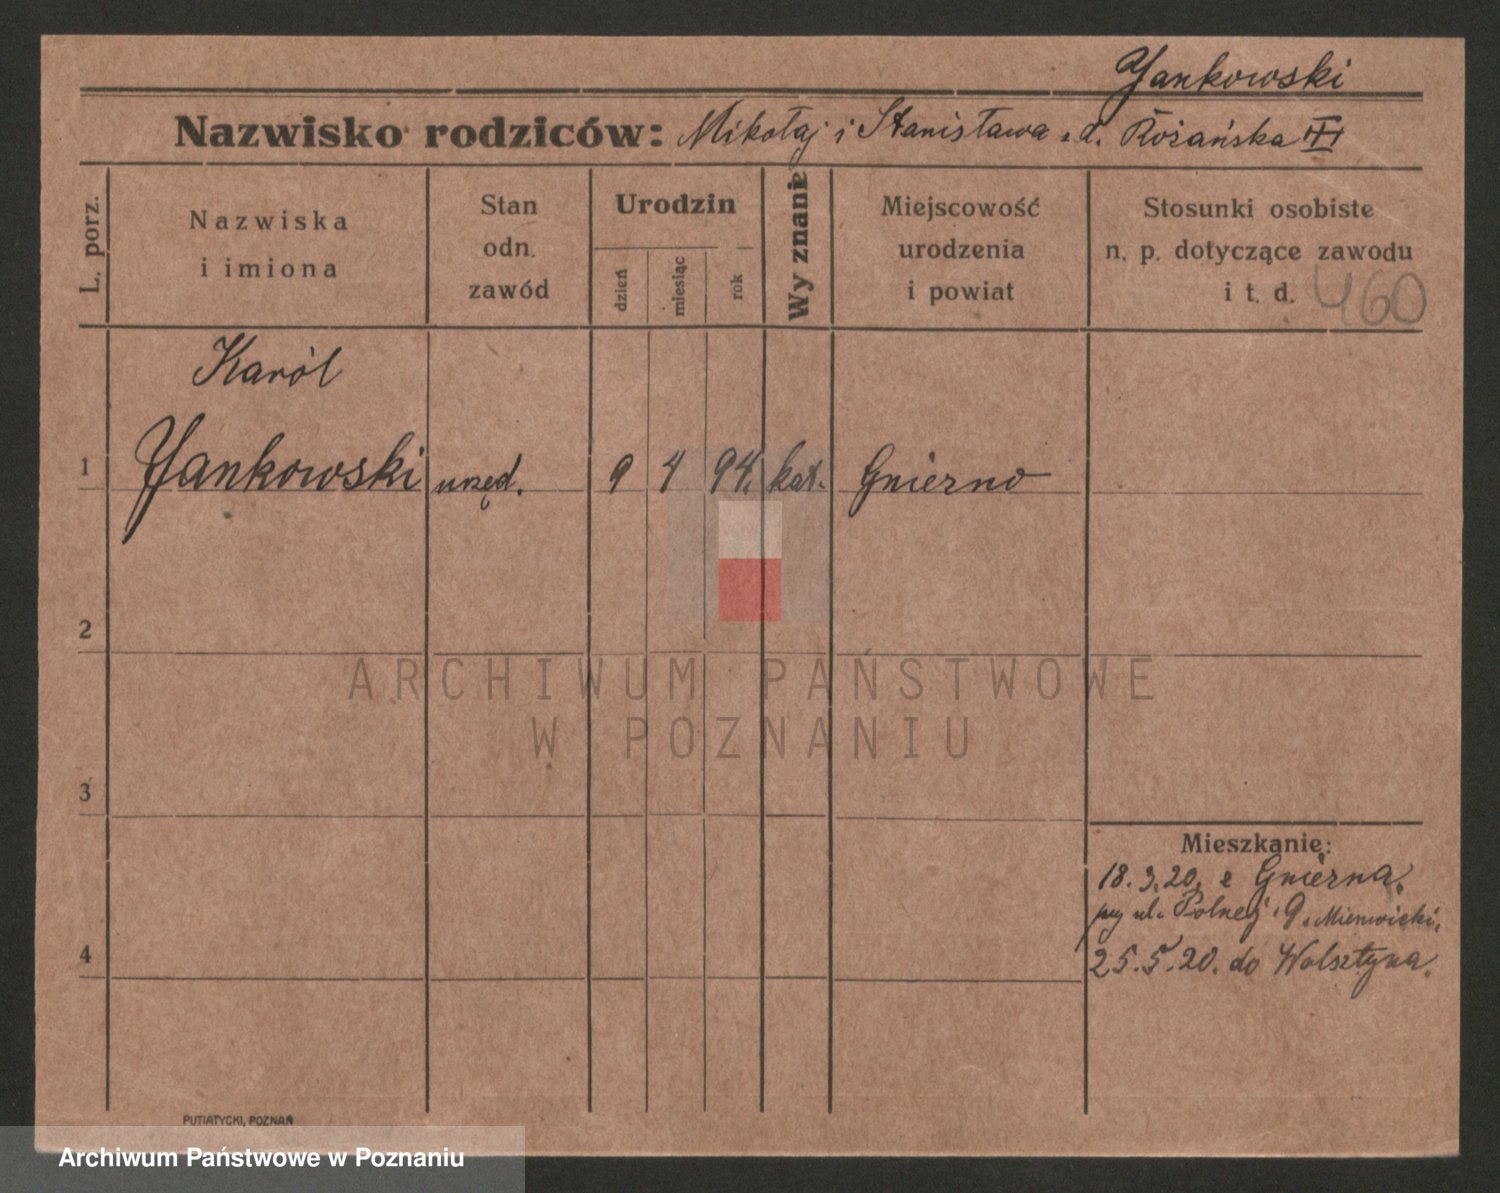 Yankowski
Nazwisko rodziców: Mikołaj i Stanisława z d. Różańska III
L. porz.
Nazwiska
i imiona
Stan
odn.
zawód
Urodzin
dzień
miesiąc
rok
Wyznanie
Miejscowość
urodzenia
i powiat
Stosunki osobiste
n. p. dotyczące zawodu
i t. d.
460
Karól
1 Yankowski urzęd. 9 4 94. kat. Gnierno
2
3
4
Mieszkanie:
18.3.20. z Gnierna.
przy ul. Polnej 9.
25.5.20. do Wolsztyna.
PUTIATYCKI, POZNAŃ
ARCHIWUM PAŃSTWOWE
W POZNANIU
Archiwum Państwowe w Poznaniu